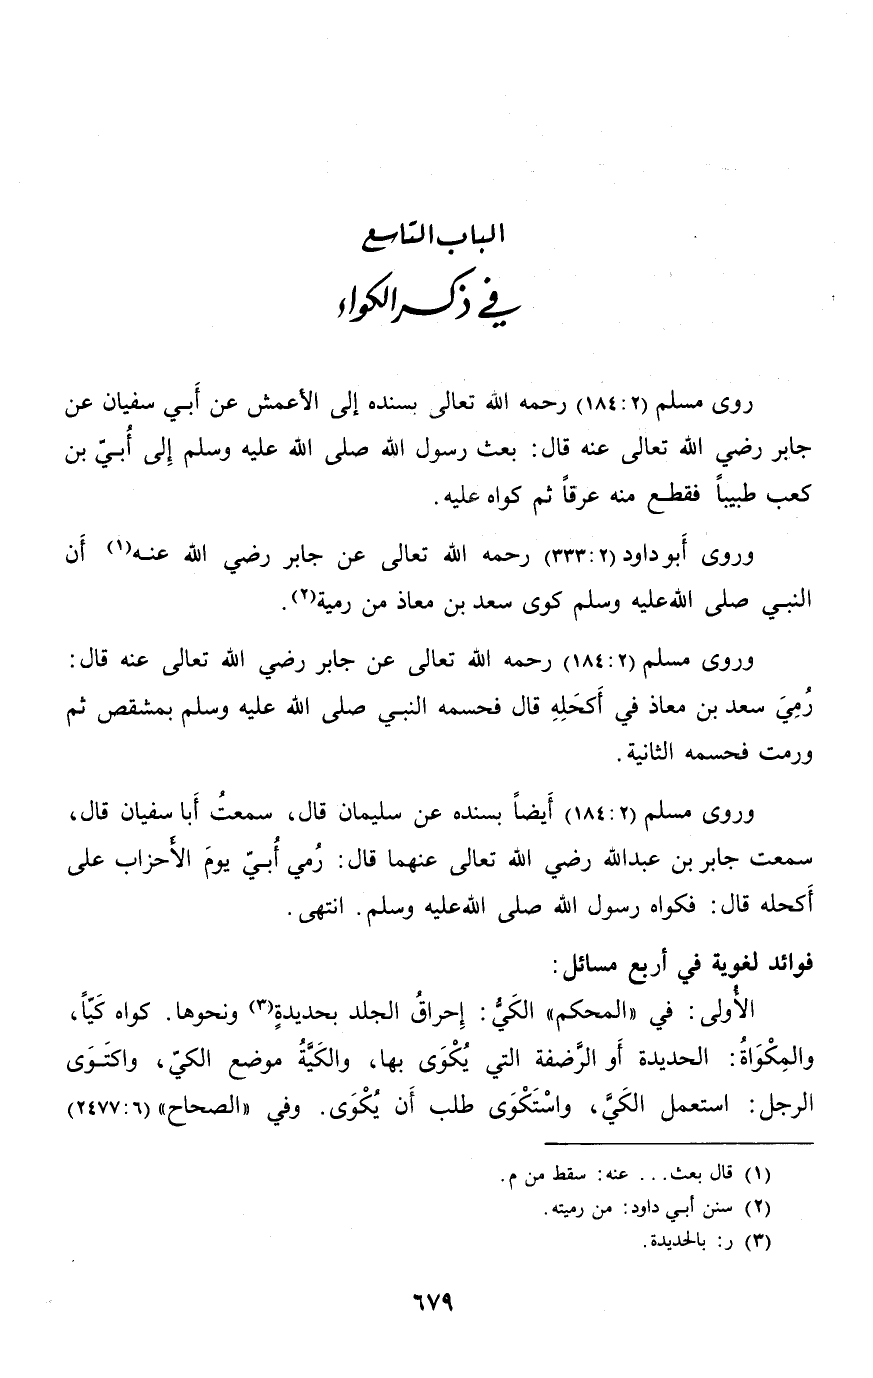 الباب التاسع
في ذكر الكواء
روى مسلم (٢: ١٨٤) رحمه الله تعالى بسنده إلى الأعمش عن أَبـي سفيان عن
جابر رضي الله تعالى عنه قال: بعث رسول الله صلى الله عليه وسلم إِلى أُبـيّ بن
كعب طبيباً فقطـع منه عرقاً ثم كواه عليه.
وروى أَبو داود (٢: ٣٣٣) رحمه الله تعالى عن جابر رضي الله عنـه(١) أَن
النبـي صلى الله عليه وسلم كوى سعد بن معاذ من رمية(٢).
وروى مسلم (٢: ١٨٤) رحمه الله تعالى عن جابر رضي الله تعالى عنه قال:
رُمِيَ سعد بن معاذ في أَكحَلِهِ قال فحسمه النبـي صلى الله عليه وسلم بمشقص ثم
ورمت فحسمه الثانية.
وروى مسلم (٢: ١٨٤) أَيضاً بسنده عن سليمان قال، سمعتُ أَبا سفيان قال،
سمعت جابر بن عبدالله رضي الله تعالى عنهما قال: رُمي أُبـيّ يومَ الأَحزاب على
أَكحله قال: فكواه رسول الله صلى الله عليه وسلم. انتهى.
فوائد لغوية في أربع مسائل:
الأُولى: في «المحكم» الكَيُّ: إِحراقُ الجلد بحديدةٍ(٣) ونحوها. كواه كَيّاً،
والمِكْوَاةُ: الحديدة أَو الرَّضفة التي يُكْوَى بها، والكَيَّةُ موضع الكيّ، واكتَـوَى
الرجل: استعمل الكَيَّ، واسْتَكْوَى طلب أَن يُكْوَى. وفي «الصحاح» (٦: ٢٤٧٧)
(١) قال بعث... عنه: سقط من م.
(٢) سنن أبـي داود: من رميته.
(٣) ر: بالحديدة.
٦٧٩